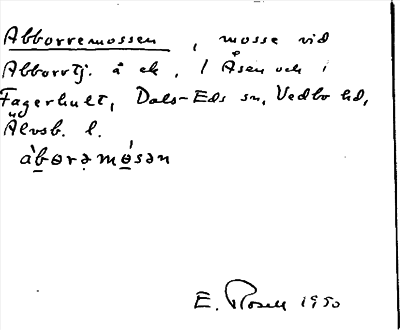 Abborremossen, mosse vid
Abborrtj. å ek. 1 Åsen och i
Fagerhult, Dals-Eds sn, Vedbo hd,
Älvsb. l.
àbɵrə̣mɵ́sən
E. Rosell 1950